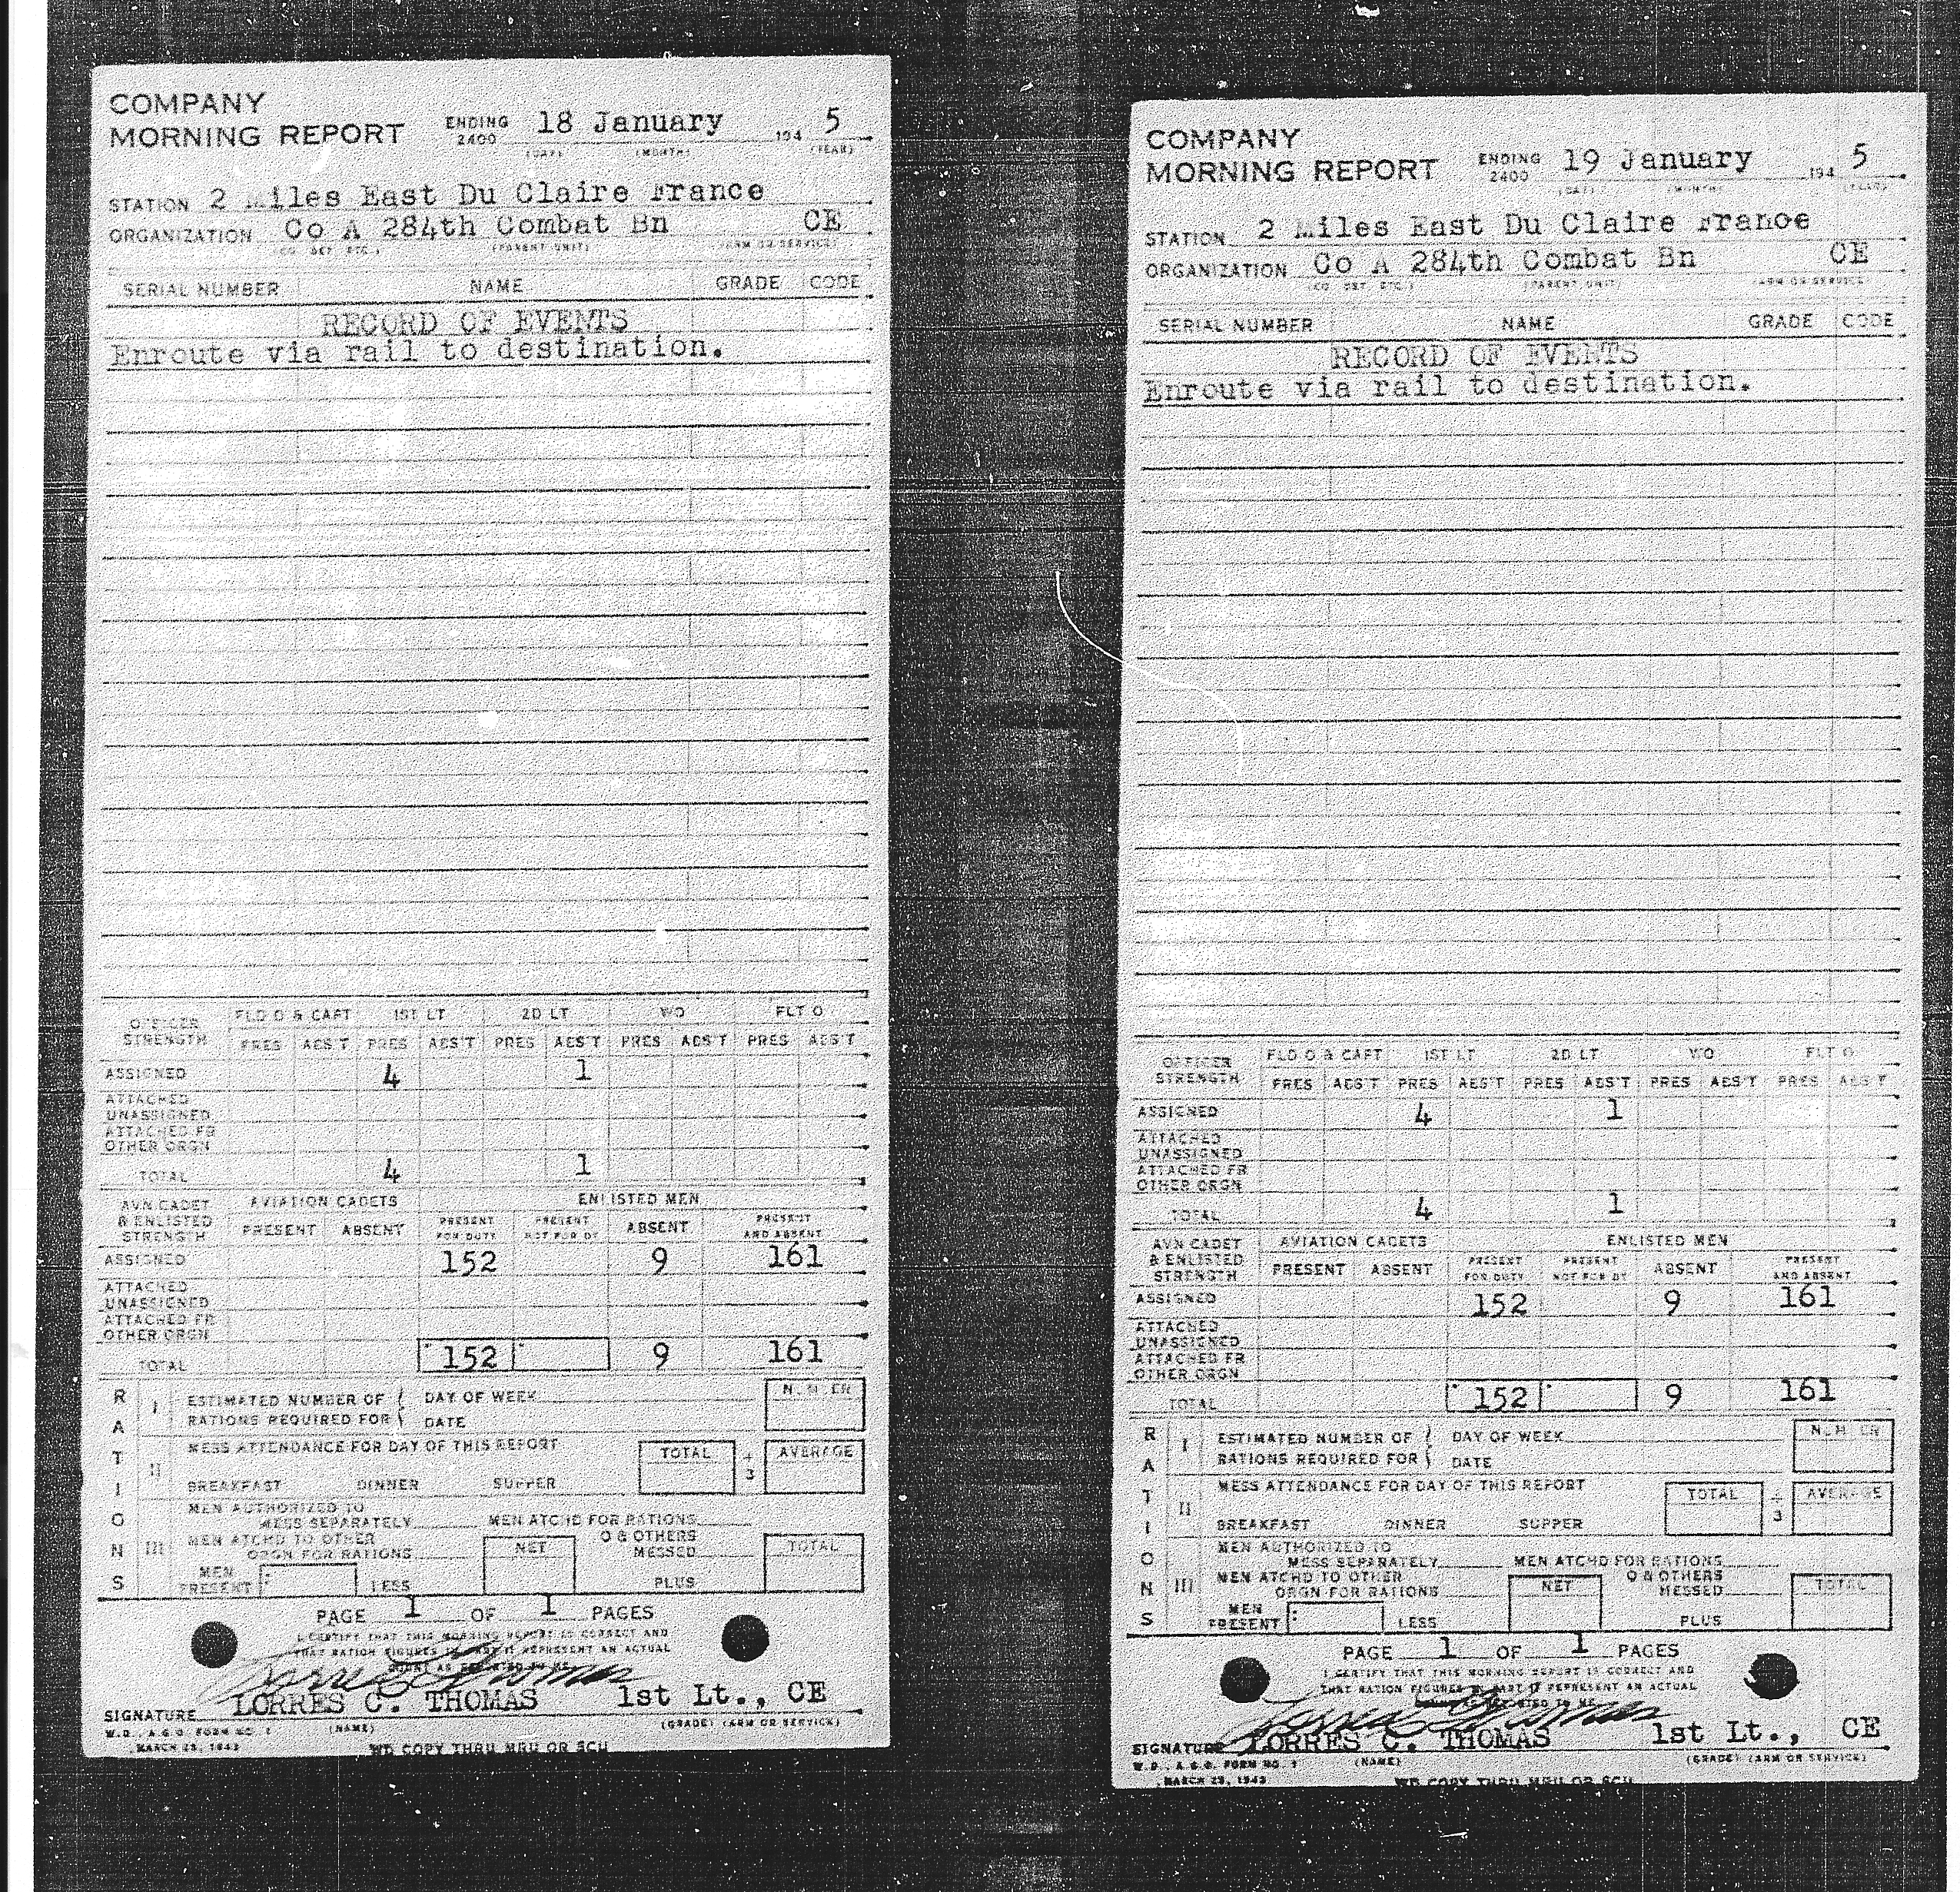 COMPANY
MORNING REPORT ENDING 2400 18 January 194 5
(DAY) (MONTH) (YEAR)
STATION 2 Miles East Du Claire France
ORGANIZATION Co A 284th Combat Bn CE
(PARENT UNIT) (ARM OR SERVICE)
SERIAL NUMBER NAME GRADE CODE
RECORD OF EVENTS
Enroute via rail to destination.
OFFICER STRENGTH FLD O & CAPT 1ST LT 2D LT WO FLT O
PRES ABS'T PRES ABS'T PRES ABS'T PRES ABS'T PRES ABS'T
ASSIGNED 4 1
ATTACHED
UNASSIGNED
ATTACHED FR
OTHER ORGN
TOTAL 4 1
AVN CADET & ENLISTED STRENGTH AVIATION CADETS ENLISTED MEN
PRESENT ABSENT PRESENT FOR DUTY PRESENT NOT FOR DY ABSENT PRESENT AND ABSENT
ASSIGNED 152 9 161
ATTACHED
UNASSIGNED
ATTACHED FR
OTHER ORGN
TOTAL 152 9 161
RATIONS
I ESTIMATED NUMBER OF DAY OF WEEK NUMBER
RATIONS REQUIRED FOR DATE
II MESS ATTENDANCE FOR DAY OF THIS REPORT TOTAL ÷ 3 AVERAGE
BREAKFAST DINNER SUPPER
III MEN AUTHORIZED TO
MESS SEPARATELY MEN ATCHD FOR RATIONS
MEN ATCHD TO OTHER O & OTHERS
ORGN FOR RATIONS NET MESSED TOTAL
MEN
PRESENT LESS PLUS
PAGE 1 OF 1 PAGES
I CERTIFY THAT THIS MORNING REPORT IS CORRECT AND
THAT RATION FIGURES IN PART II REPRESENT AN ACTUAL
COUNT AS REPORTED TO ME
Lorres C Thomas
SIGNATURE LORRES C. THOMAS 1st Lt., CE
W.D., A.G.O. FORM NO. 1 (NAME) (GRADE) (ARM OR SERVICE)
MARCH 25, 1943 WD COPY THRU MRU OR SCU
COMPANY
MORNING REPORT ENDING 2400 19 January 194 5
(DAY) (MONTH) (YEAR)
STATION 2 Miles East Du Claire France
ORGANIZATION Co A 284th Combat Bn CE
(PARENT UNIT) (ARM OR SERVICE)
SERIAL NUMBER NAME GRADE CODE
RECORD OF EVENTS
Enroute via rail to destination.
OFFICER STRENGTH FLD O & CAPT 1ST LT 2D LT WO FLT O
PRES ABS'T PRES ABS'T PRES ABS'T PRES ABS'T PRES ABS'T
ASSIGNED 4 1
ATTACHED
UNASSIGNED
ATTACHED FR
OTHER ORGN
TOTAL 4 1
AVN CADET & ENLISTED STRENGTH AVIATION CADETS ENLISTED MEN
PRESENT ABSENT PRESENT FOR DUTY PRESENT NOT FOR DY ABSENT PRESENT AND ABSENT
ASSIGNED 152 9 161
ATTACHED
UNASSIGNED
ATTACHED FR
OTHER ORGN
TOTAL 152 9 161
RATIONS
I ESTIMATED NUMBER OF DAY OF WEEK NUMBER
RATIONS REQUIRED FOR DATE
II MESS ATTENDANCE FOR DAY OF THIS REPORT TOTAL ÷ 3 AVERAGE
BREAKFAST DINNER SUPPER
III MEN AUTHORIZED TO
MESS SEPARATELY MEN ATCHD FOR RATIONS
MEN ATCHD TO OTHER O & OTHERS
ORGN FOR RATIONS NET MESSED TOTAL
MEN
PRESENT LESS PLUS
PAGE 1 OF 1 PAGES
I CERTIFY THAT THIS MORNING REPORT IS CORRECT AND
THAT RATION FIGURES IN PART II REPRESENT AN ACTUAL
COUNT AS REPORTED TO ME
Lorres C Thomas
SIGNATURE LORRES C. THOMAS 1st Lt., CE
W.D., A.G.O. FORM NO. 1 (NAME) (GRADE) (ARM OR SERVICE)
MARCH 25, 1943 WD COPY THRU MRU OR SCU